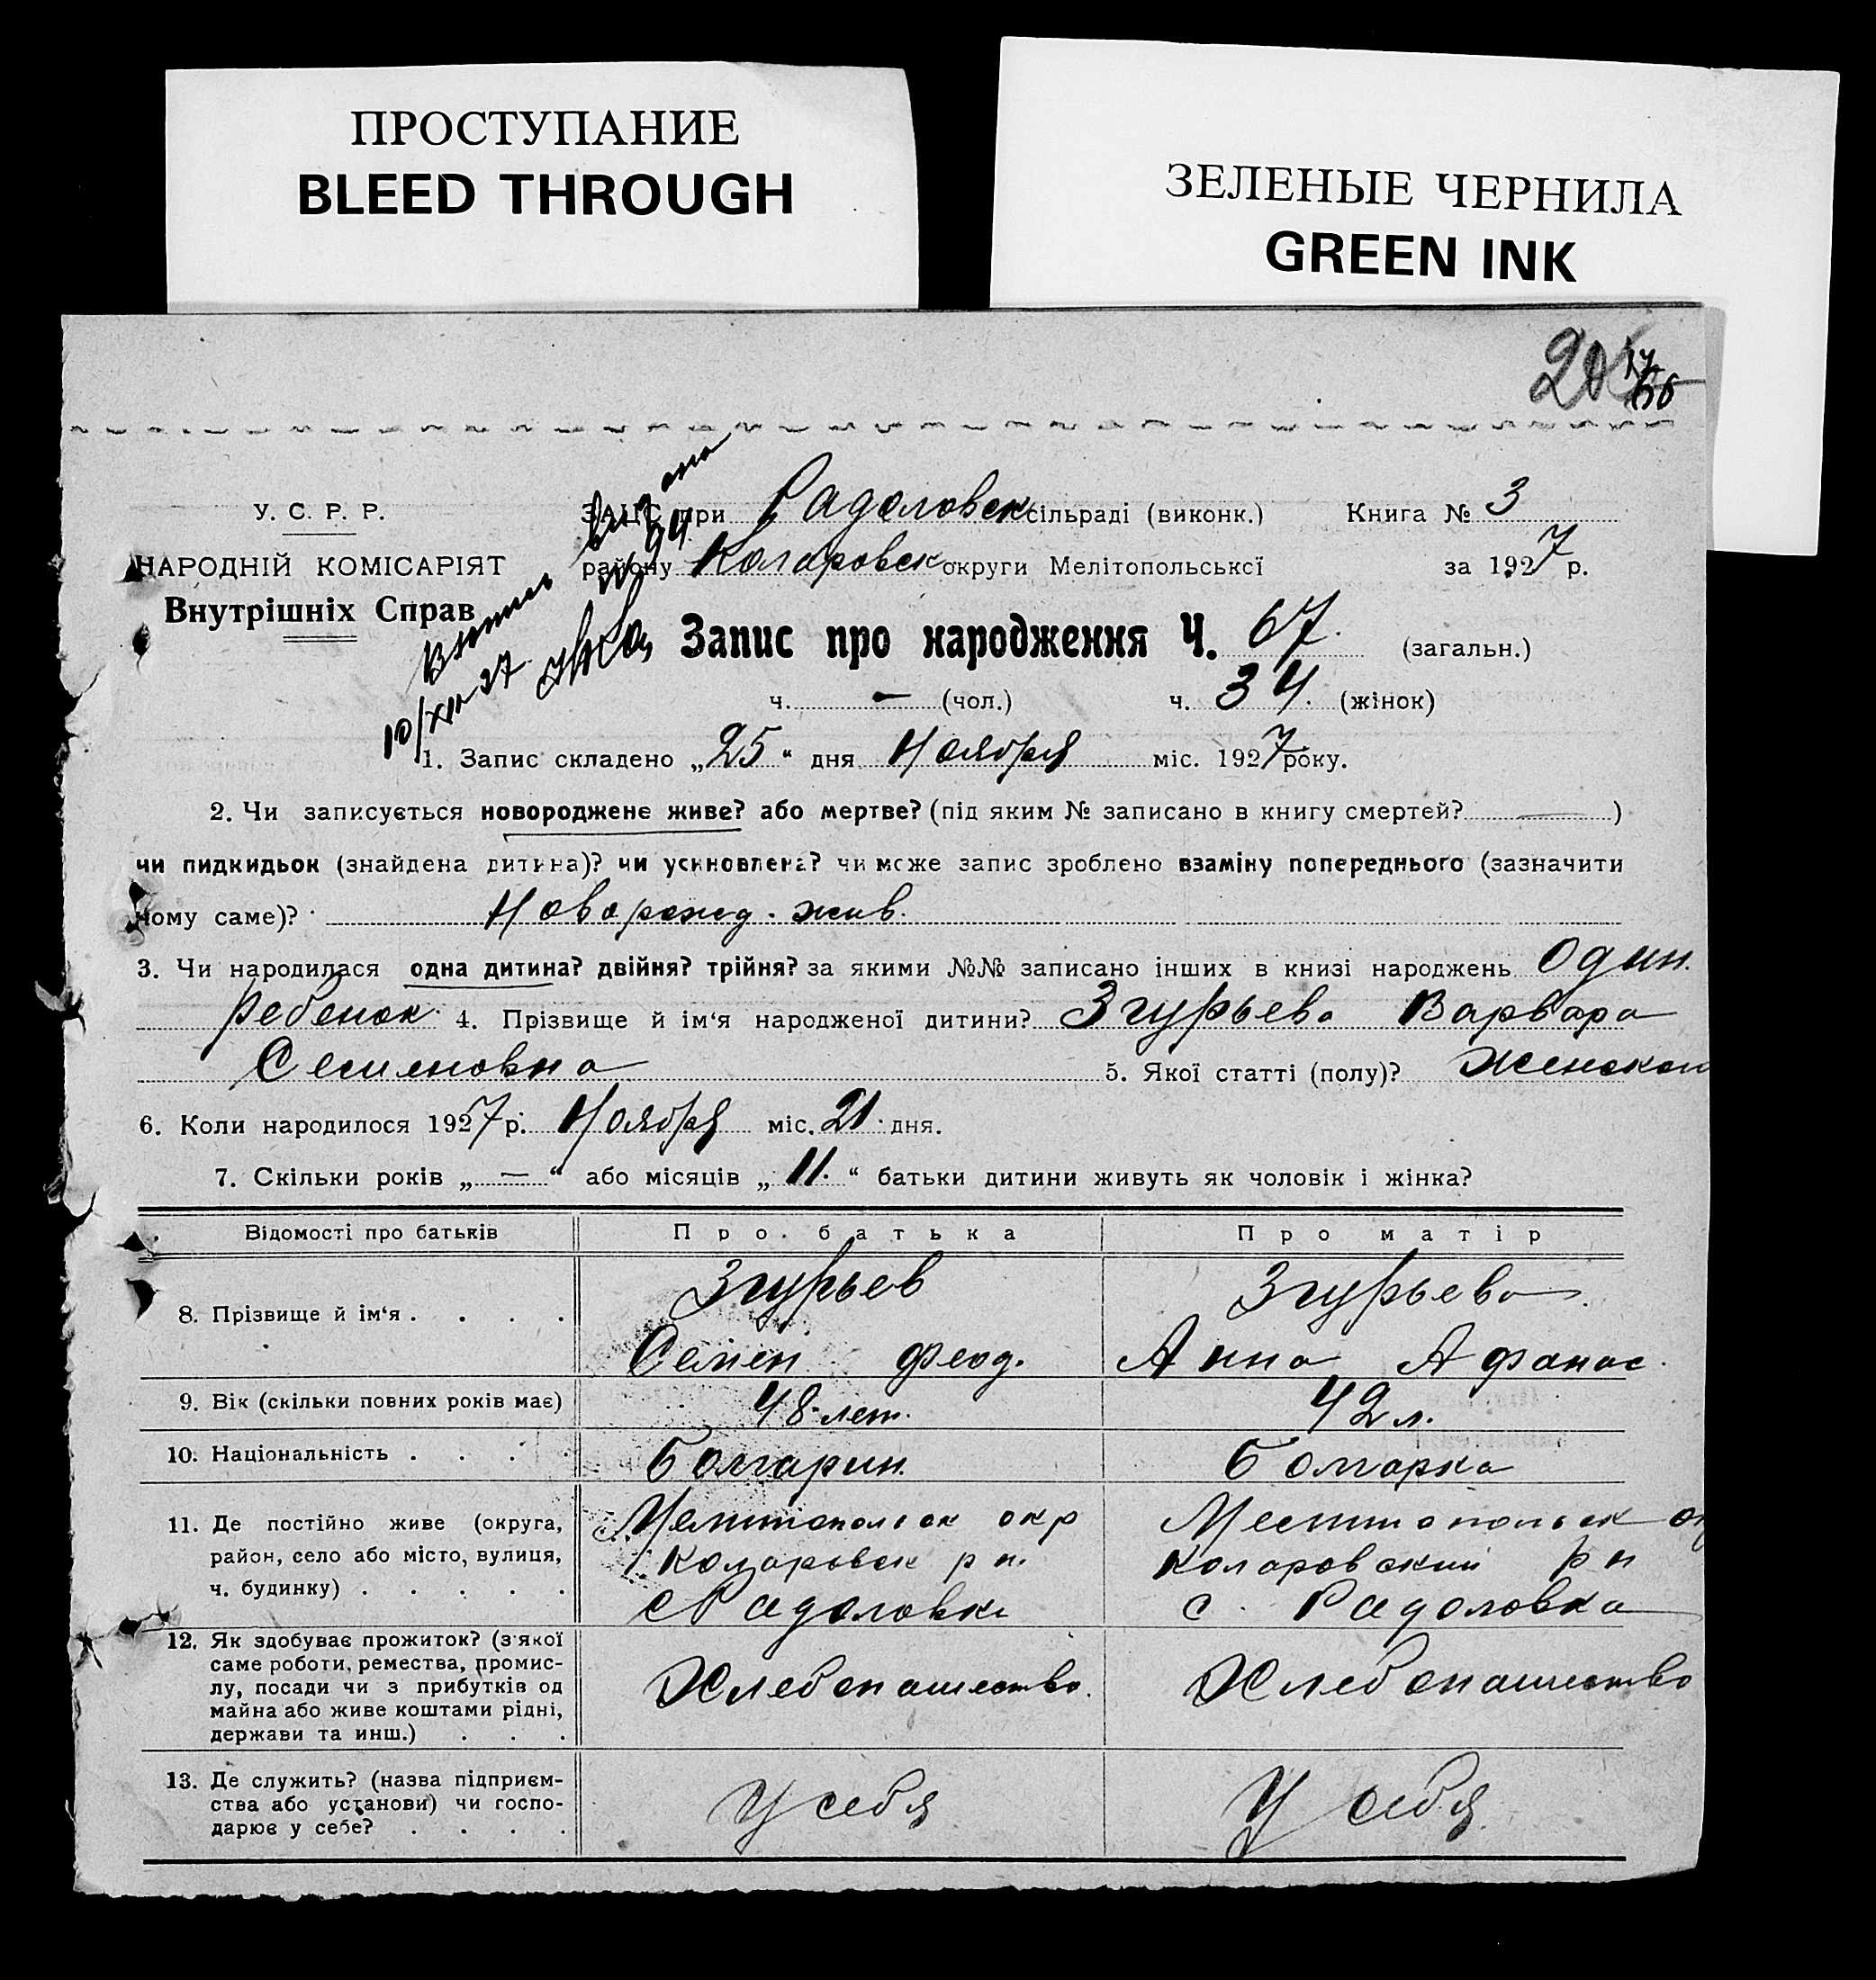 ПРОСТУПАНИЕ
BLEED THROUGH
ЗЕЛЕНЫЕ ЧЕРНИЛА
GREEN INK
У. С. Р. Р.
НАРОДНІЙ КОМІСАРІЯТ
Внутрішніх Справ
Выпись выдана
10/XII 27
ЗАЦС при Радоловск сільраді (виконк.) Книга № 3
району Коларовск округи Мелітопольської за 1927 р.
Запис про народження Ч. 67. (загальн.)
ч. — (чол.) ч. 34. (жінок)
1. Запис складено „25“ дня Ноября міс. 1927 року.
2. Чи записується новороджене живе? або мертве? (під яким № записано в книгу смертей? — )
чи пидкидьок (знайдена дитина)? чи усиновлена? чи може запис зроблено взаміну попереднього (зазначити
чому саме)? Наворожд. жив.
3. Чи народилася одна дитина? двійня? трійня? за якими №№ записано інших в книзі народжень один.
ребенок. 4. Прізвище й ім‘я народженої дитини? Згурьева Варвара
Семеновна 5. Якої статті (полу)? Женском
6. Коли народилося 1927 р. Ноября міс. 21. дня.
7. Скільки років „—“ або місяців „11.“ батьки дитини живуть як чоловік і жінка?
Відомості про батьків Про батька Про матір
8. Прізвище й ім‘я . . . . Згурьев Згурьева
Семен Феод. Анна Афанас.
9. Вік (скільки повних років має) 48 лет. 42 л.
10. Національність . . . . Болгарин. Болгарка
11. Де постійно живе (округа, Мелитопольск окр Мелитопольск ок
район, село або місто, вулиця, Коларовск рн. Коларовский рн
ч. будинку) . . . . . с Радоловке с. Радоловка
12. Як здобуває прожиток? (з якої
саме роботи, ремества, промис-
лу, посади чи з прибутків од Хлебопашество. Хлебопашество
майна або живе коштами рідні,
держави та инш.) . . .
13. Де служить? (назва підприєм-
ства або установи) чи госпо- У себя У себя
дарює у себе? . . . .